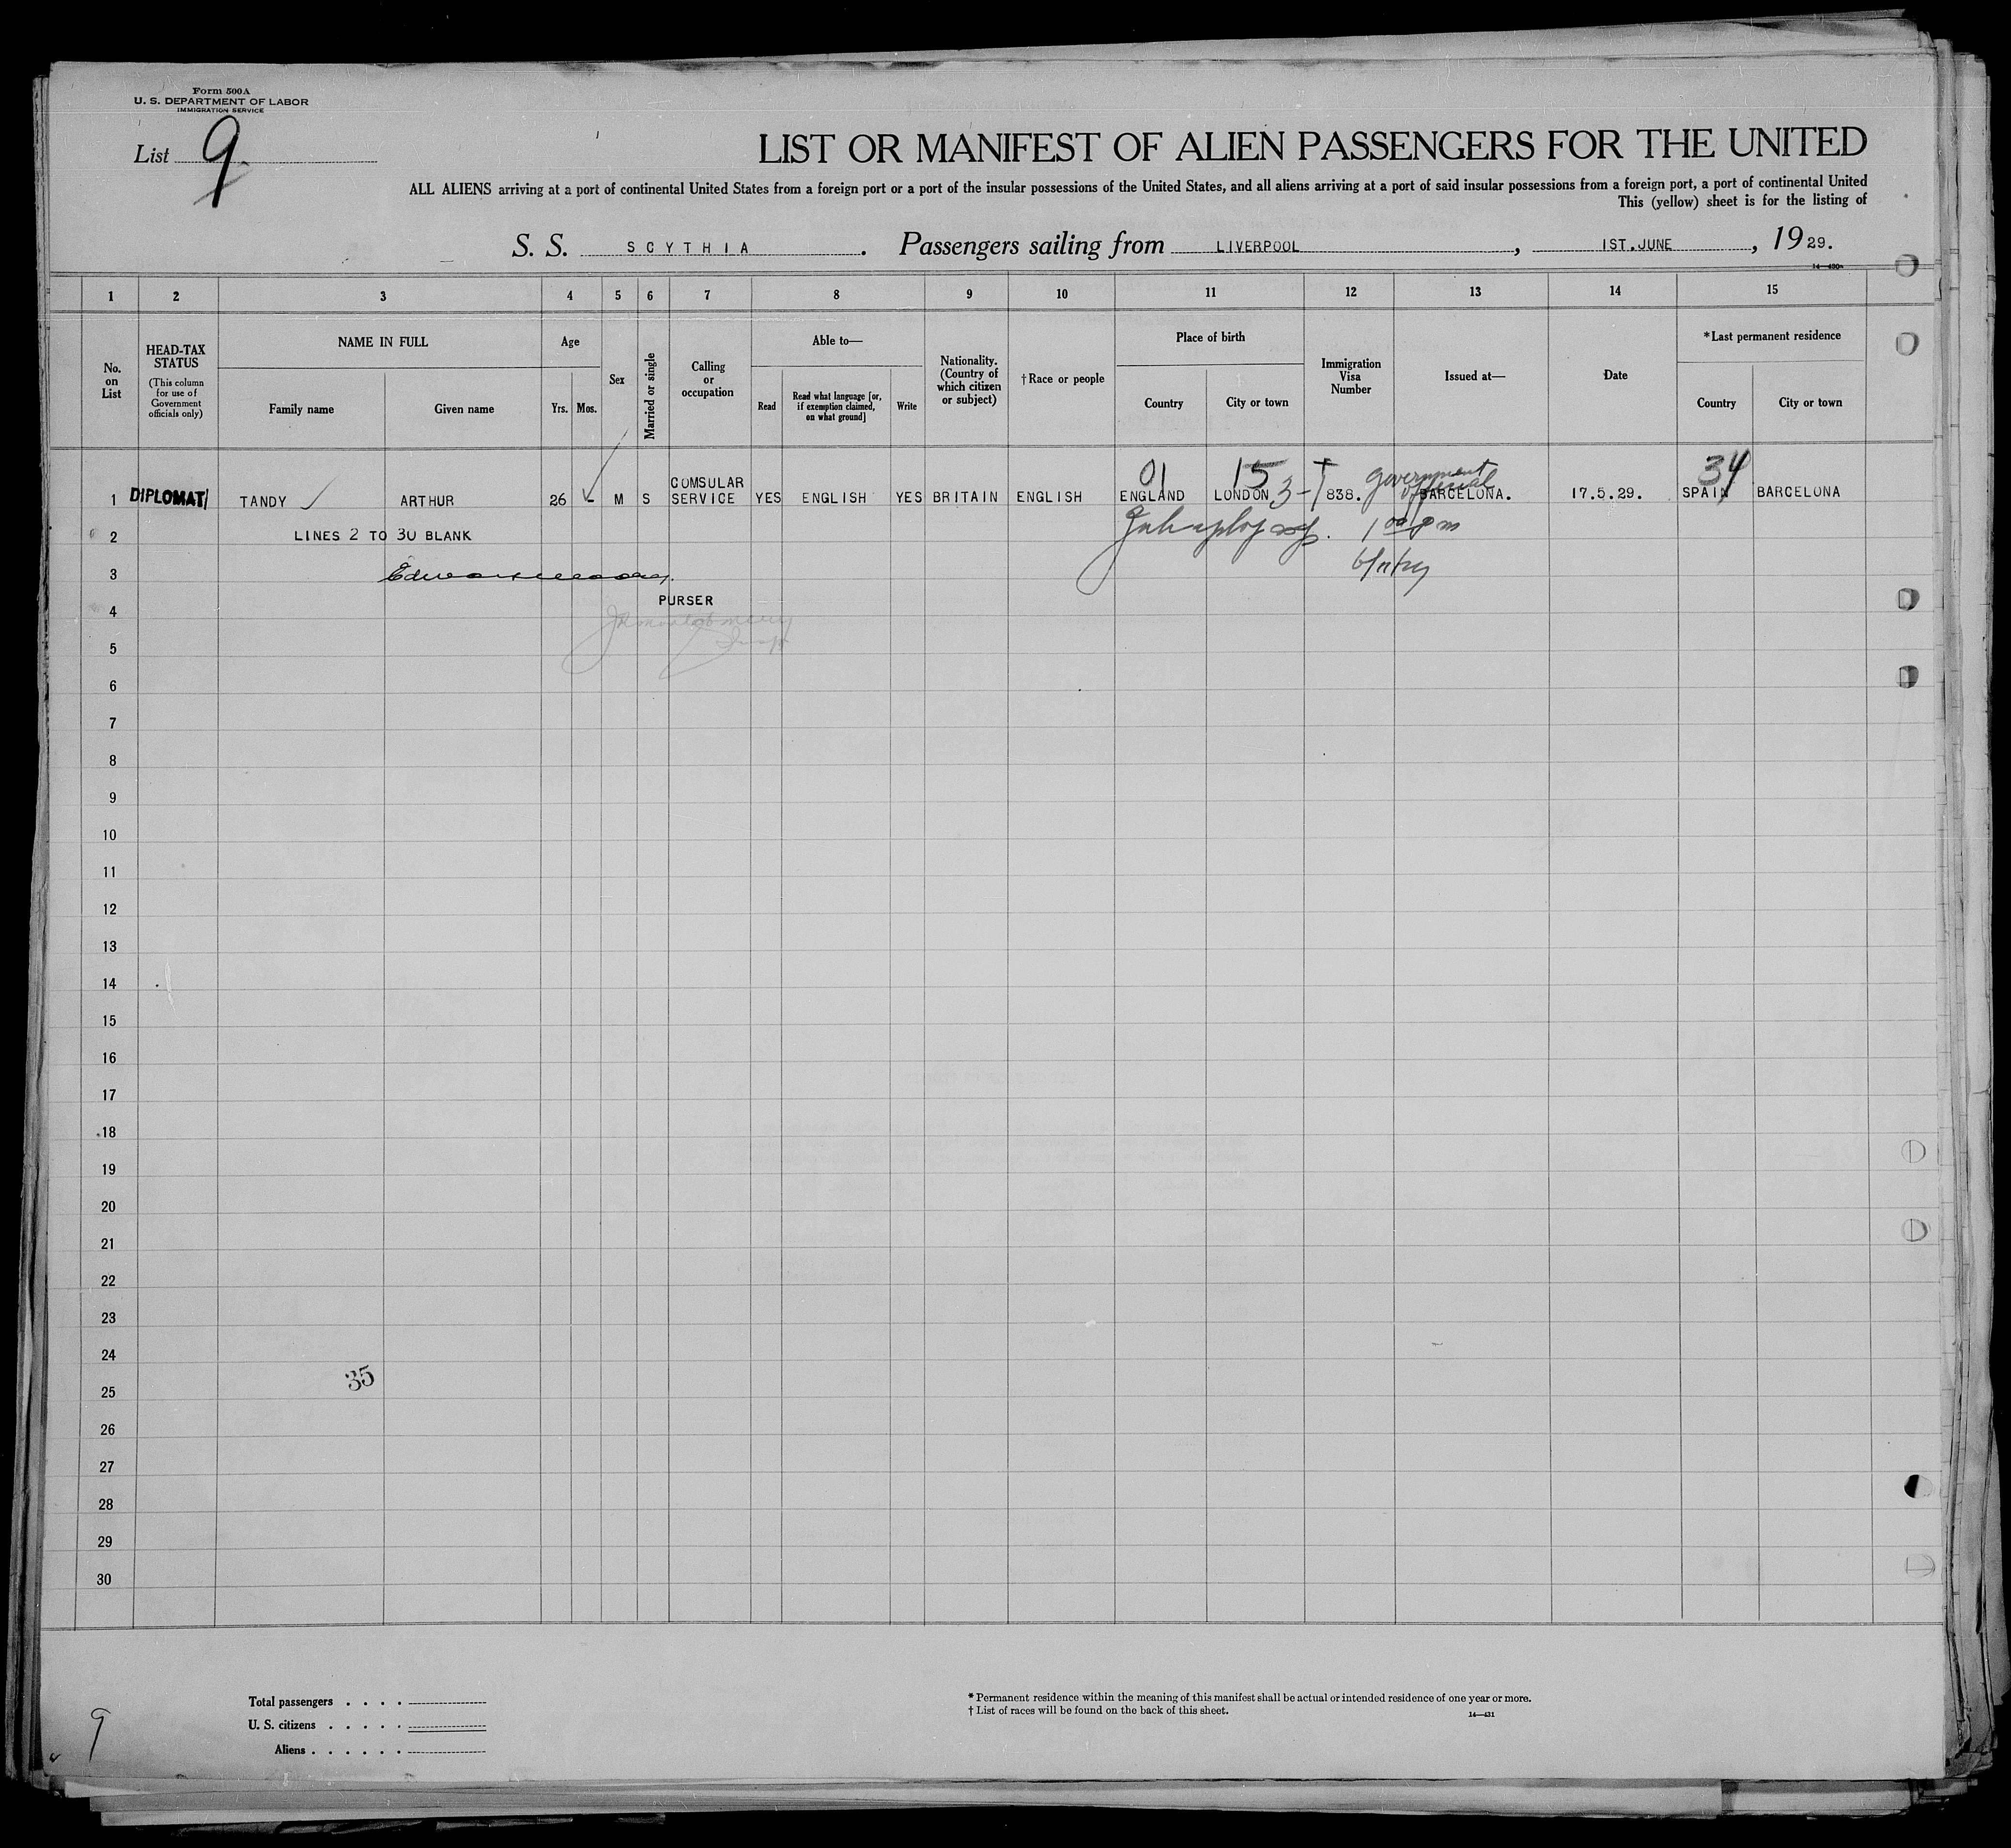 Form 500A
U. S. DEPARTMENT OF LABOR
IMMIGRATION SERVICE
List 9
LIST OR MANIFEST OF ALIEN PASSENGERS FOR THE UNITED
ALL ALIENS arriving at a port of continental United States from a foreign port or a port of the insular possessions of the United States, and all aliens arriving at a port of said insular possessions from a foreign port, a port of continental United
This (yellow) sheet is for the listing of
S. S. SCYTHIA. Passengers sailing from LIVERPOOL, 1ST.JUNE, 1929.
14—430a
1 2 3 4 5 6 7 8 9 10 11 12 13 14 15
No. on List
HEAD-TAX STATUS
(This column for use of Government officials only)
NAME IN FULL
Family name
Given name
Age
Yrs. Mos.
Sex
Married or single
Calling or occupation
Able to—
Read
Read what language [or, if exemption claimed, on what ground]
Write
Nationality. (Country of which citizen or subject)
†Race or people
Place of birth
Country
City or town
Immigration Visa Number
Issued at—
Date
*Last permanent residence
Country
City or town
01 15 3-† government official 34
1 DIPLOMAT TANDY ARTHUR 26 - M S COMSULAR SERVICE YES ENGLISH YES BRITAIN ENGLISH ENGLAND LONDON 838. BARCELONA. 17.5.29. SPAIN BARCELONA
2 LINES 2 TO 30 BLANK 1 00 pm
3 6/11/29
PURSER
4
5
6
7
8
9
10
11
12
13
14
15
16
17
18
19
20
21
22
23
24
35
25
26
27
28
29
30
Total passengers . . . .
U. S. citizens . . . . .
Aliens . . . . . .
9
* Permanent residence within the meaning of this manifest shall be actual or intended residence of one year or more.
† List of races will be found on the back of this sheet.
14—431